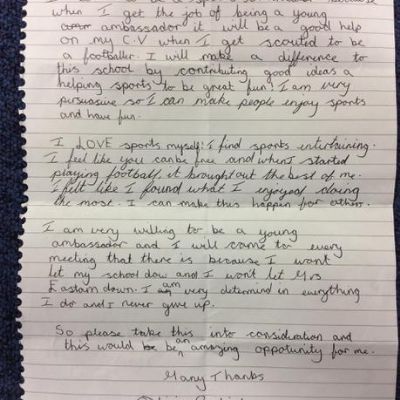 when I get the job of being a young
ambassador it will be a good help
on my C.V when I get scouted to be
a footballer. I will make a difference to
this school by contributing good ideas a
helping sports to be great fun! I am very
persuasive so I can make people enjoy sports
and have fun.
I LOVE sports myself! I find sports entertaining.
I feel like you can be free and when I started
playing football it brought out the best of me.
I felt like I found what I enjoyed doing
the most. I can make this happen for others.
I am very willing to be a young
ambassador and I will come to every
meeting that there is because I want
let my school dow and I won't let Mrs
Eastam down. I am very determind in everything
I do and I never give up.
So please take this into consideration and
this would be an amazing oppotunity for me.
Many Thanks